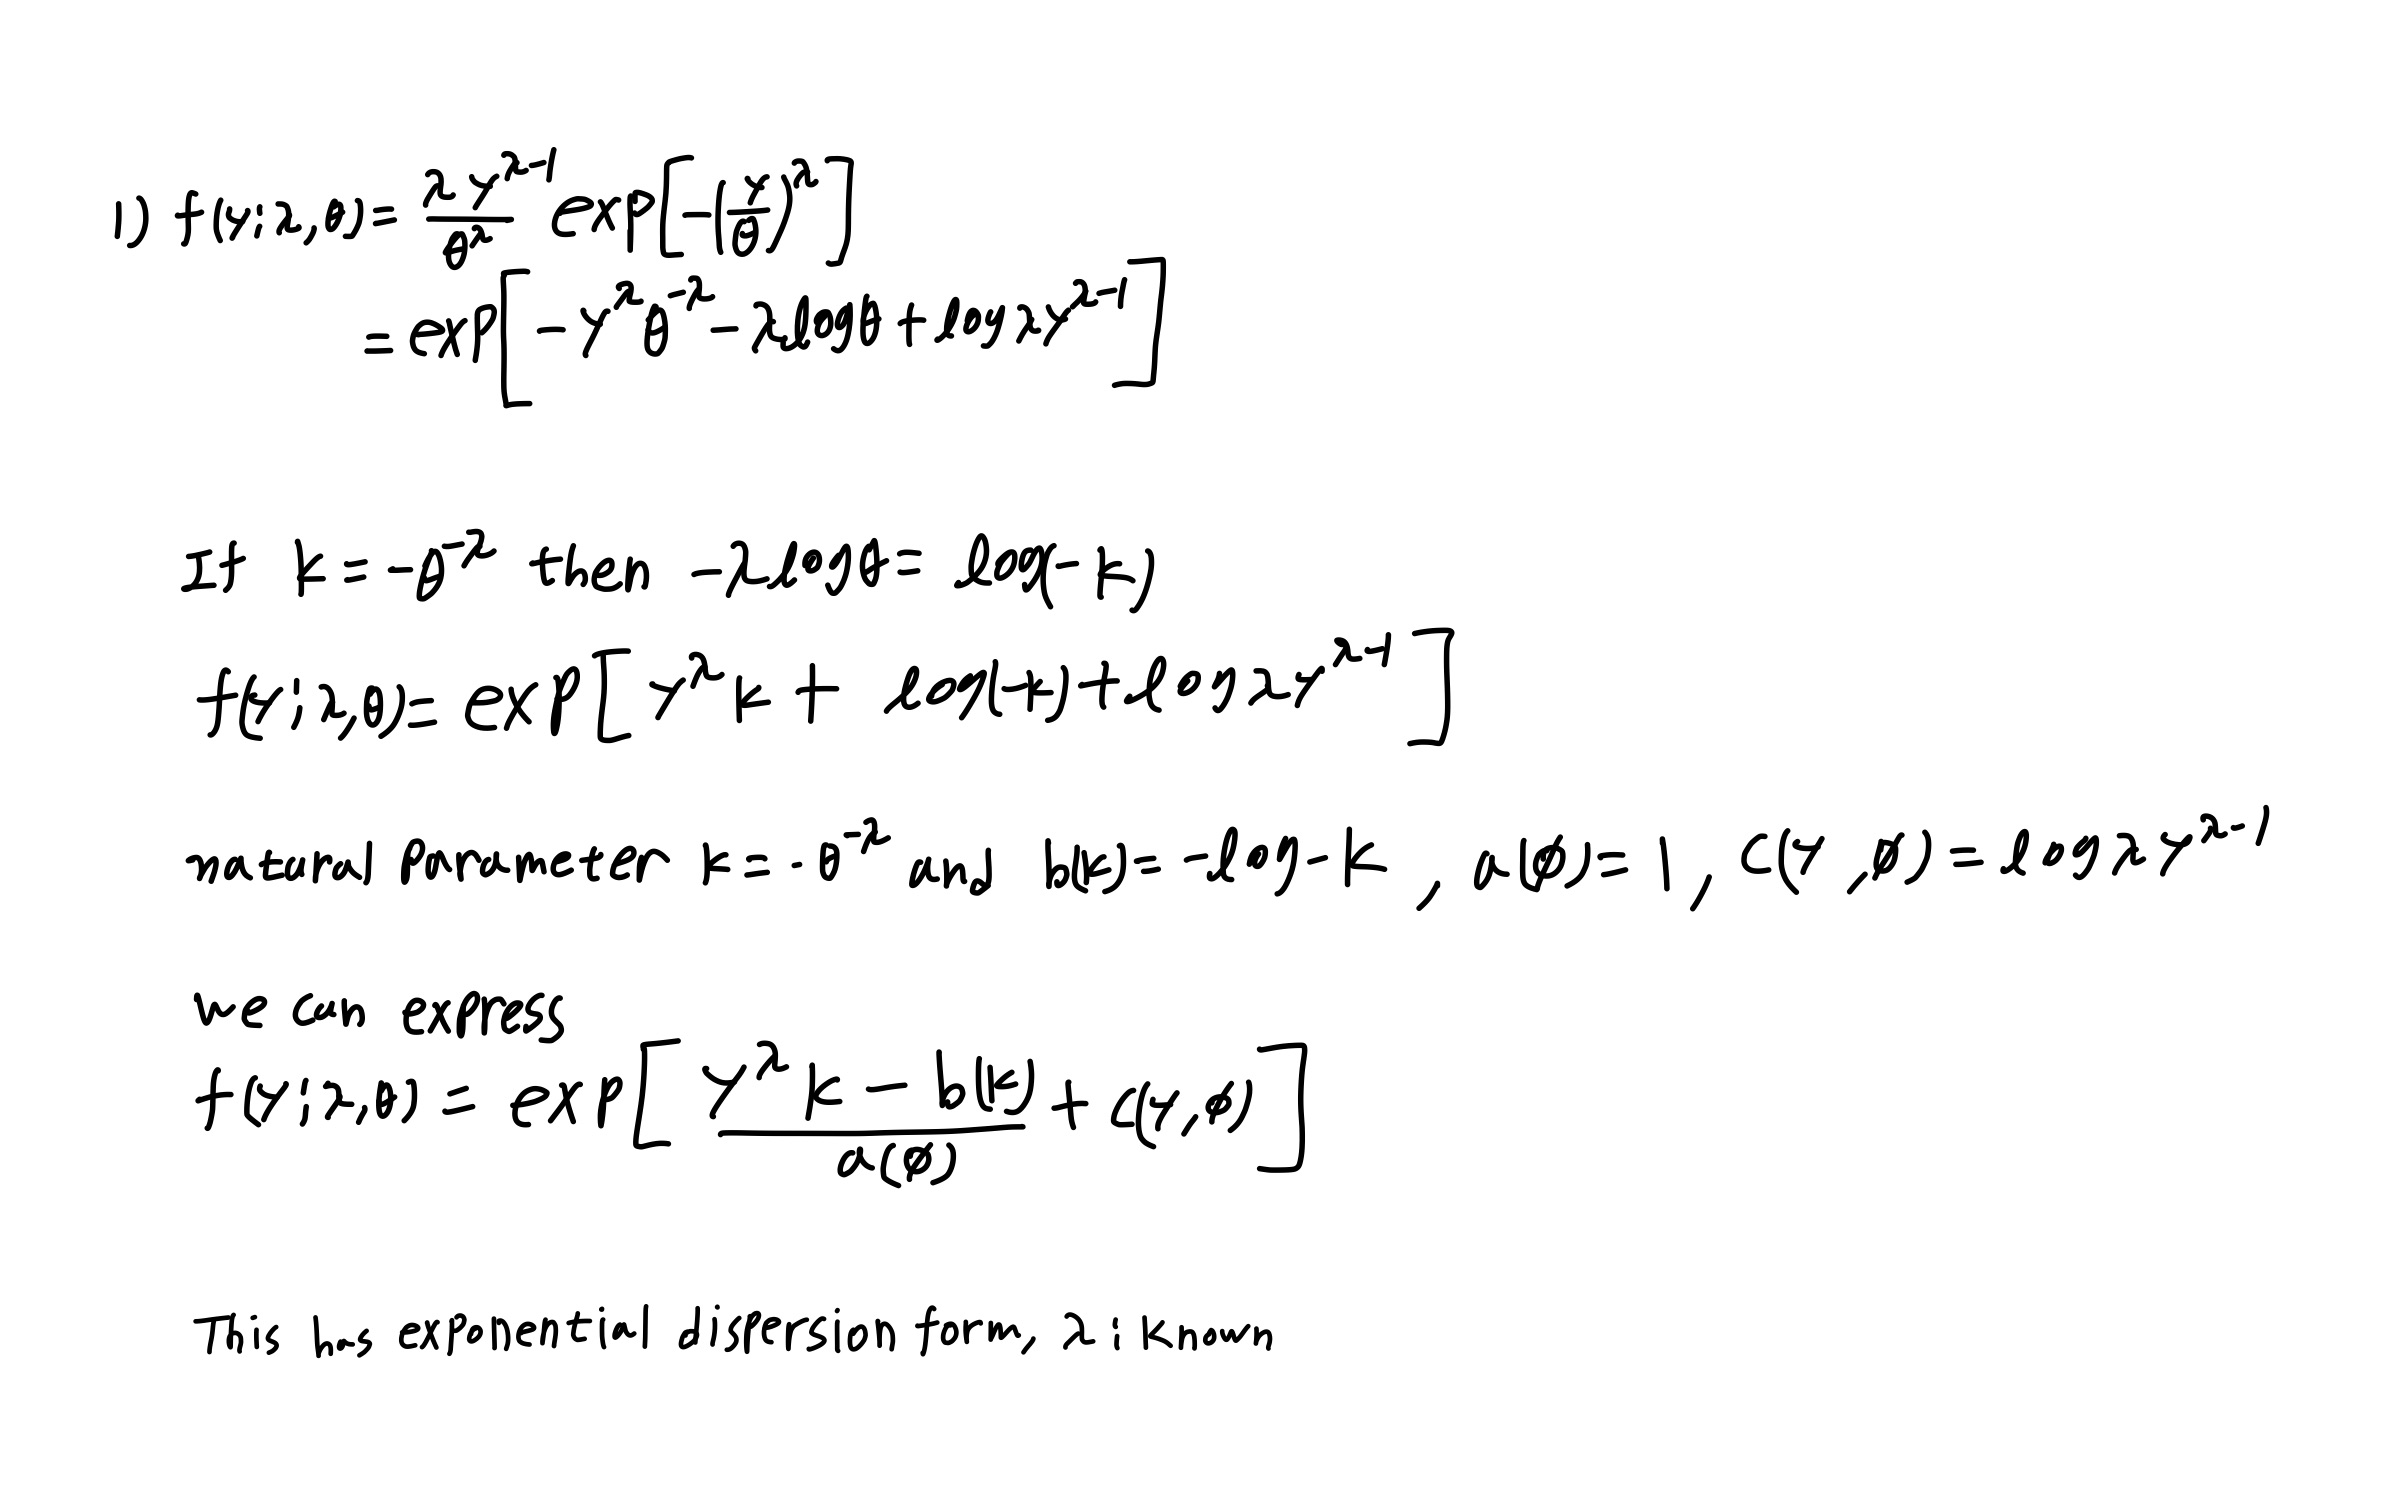 1) f(y;λ,θ) = λy^{λ-1}/θ^λ exp[-(y/θ)^λ]
= exp[-y^λ θ^{-λ} - λlogθ + logλy^{λ-1}]
If k = -θ^{-λ} then -λlogθ = log(-k)
f(y;λ,θ) = exp[y^λ k + log(-k) + logλy^{λ-1}]
natural parameter k = -θ^{-λ} and b(k) = -log-k, a(φ) = 1, c(y,φ) = logλy^{λ-1}
we can express
f(y;λ,θ) = exp[(y^λ k - b(k))/a(φ) + c(y,φ)]
This has exponential dispersion form, λ: known